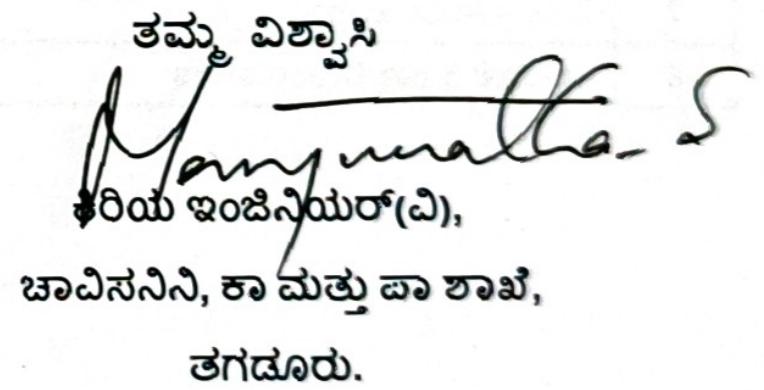 ತಮ್ಮ ವಿಶ್ವಾಸಿ
Manjunatha. S
ಕಿರಿಯ ಇಂಜಿನಿಯರ್(ವಿ),
ಚಾವಿಸನಿನಿ, ಕಾ ಮತ್ತು ಪಾ ಶಾಖೆ,
ತಗಡೂರು.